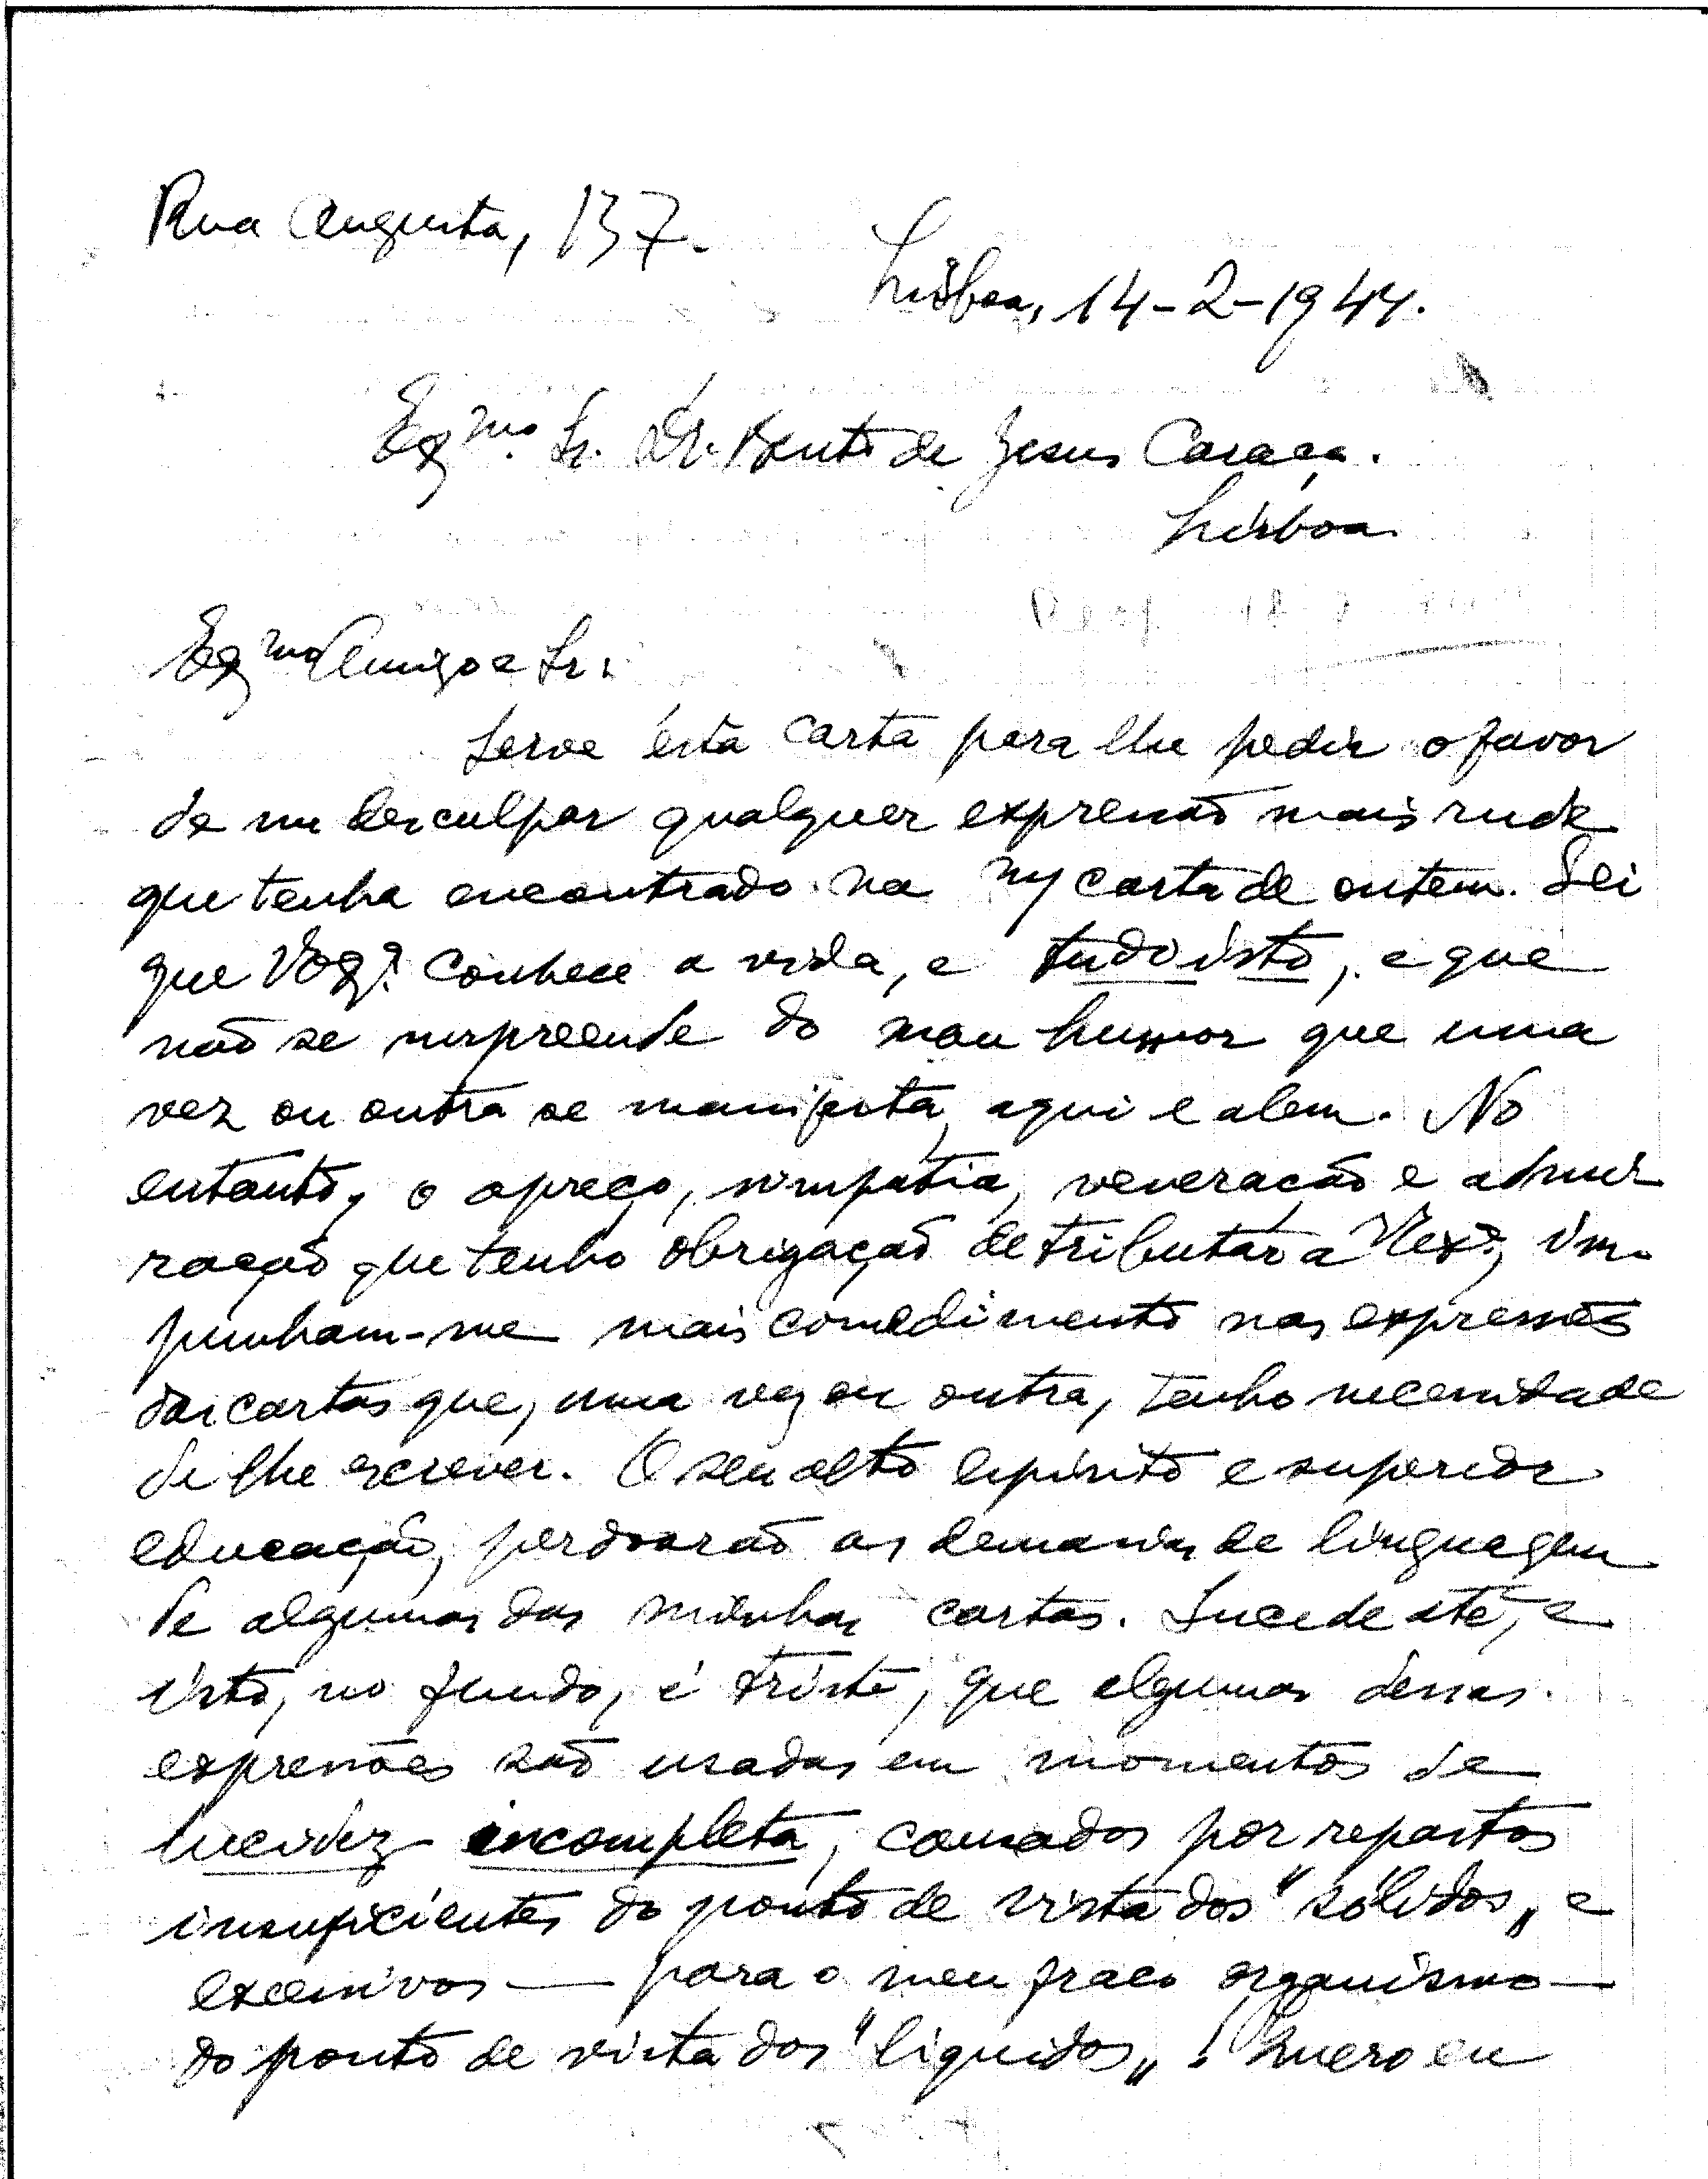 Rua Augusta, 137.
Lisboa, 14-2-1944.
Exmo. Sr. Dr. Bento de Jesus Caraça.
Lisboa
Exmo Amigo e Sr.:
Serve ésta carta para lhe pedir o favor
de me desculpar qualquer expressão mais rude
que tenha encontrado na m/ carta de ontem. Sei
que V. Exª. conhece a vida, e tudo isto, e que
não se surpreende do mau humor que uma
vez ou outra se manifesta, aqui e alem. No
entanto, o apreço, simpatia, veneração e admi-
ração que tenho obrigação de tributar a V. Exª, im-
punham-me mais comedimento nas expressões
das cartas que, uma vez ou outra, tenho necessidade
de lhe escrever. O seu alto espirito e superior
educação, perdoarão as demasias de linguagem
de algumas das minhas cartas. Sucede até, e
isto, no fundo, é triste, que algumas dessas
expressões são usadas em momentos de
lucidez incompleta, causados por repastos
insuficientes do ponto de vista dos "sólidos„ e
excessivos — para o meu fraco organismo —
do ponto de vista dos "liquidos„! Quero eu